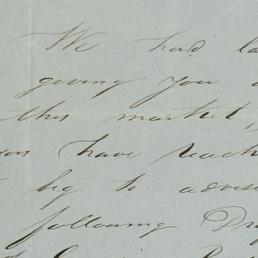 We had la
giving you a
this market,
you have reach
beg to advise
following Dr